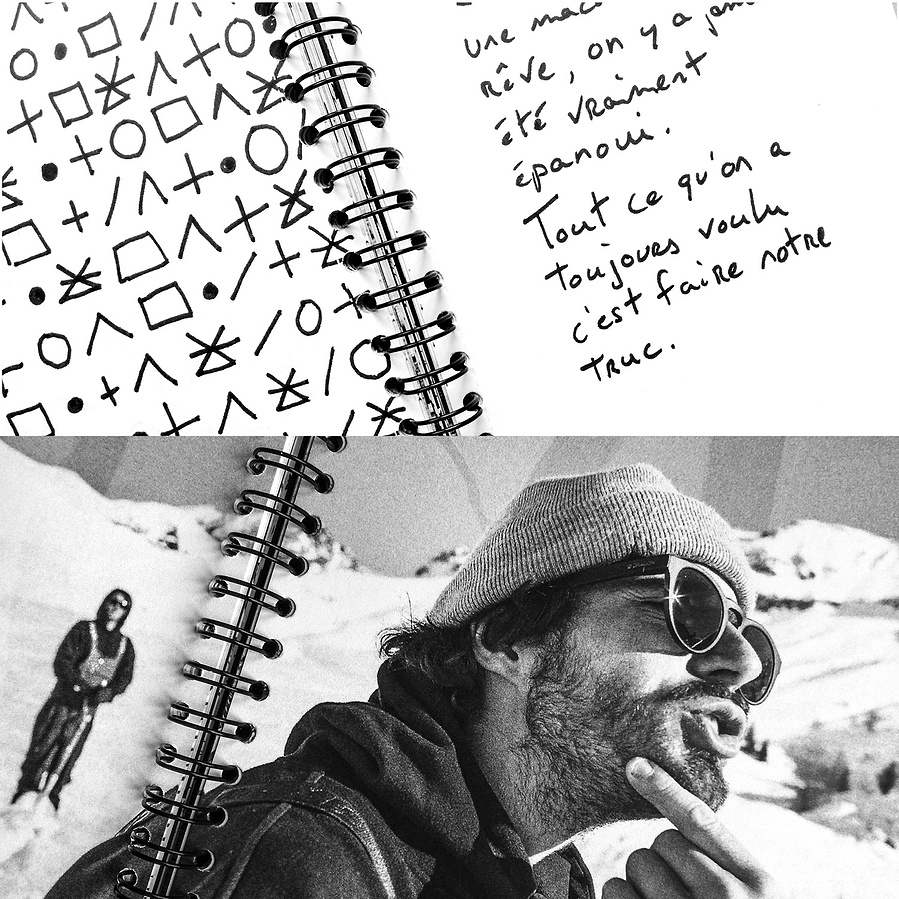 une
rêve, on y a
été vraiment
épanoui.
Tout ce qu'on a
toujours voulu
c'est faire notre
truc.